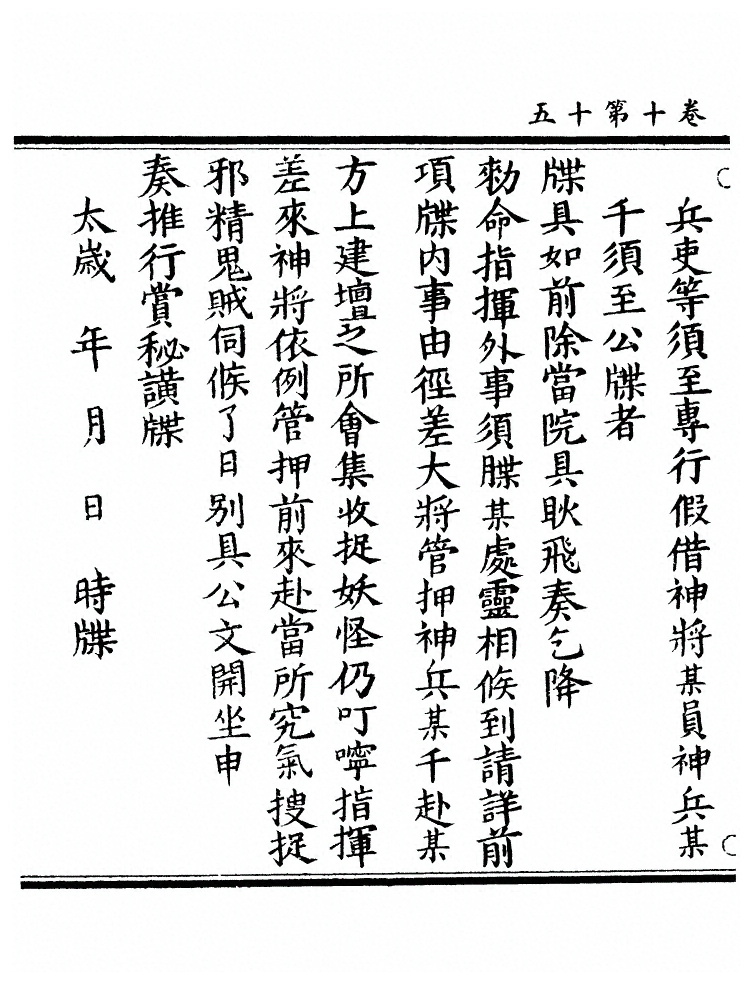 卷十第十五
兵吏等須至專行假借神將某員神兵某
千須至公牒者
牒具如前除當院具耿飛奏乞降
勑命指揮外事須牒某處靈相候到請詳前
項牒內事由徑差大將管押神兵某千赴某
方上建壇之所會集收捉妖怪仍叮嚀指揮
差來神將依例管押前來赴當所究氣搜捉
邪精鬼賊伺候了日別具公文開坐申
奏推行賞秘謹牒
太歲年月日時牒